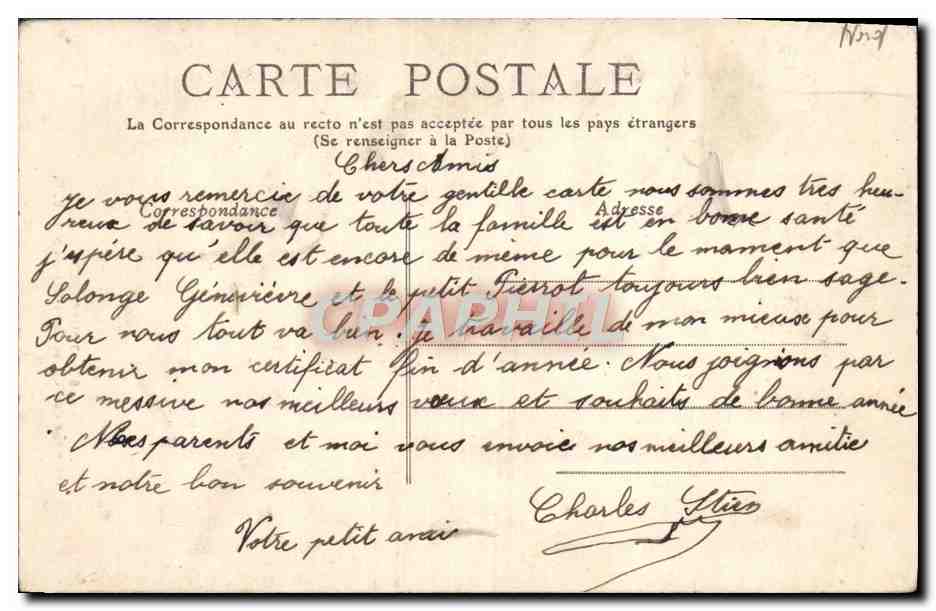 Nord
CARTE POSTALE
La Correspondance au recto n'est pas acceptée par tous les pays étrangers
(Se renseigner à la Poste)
Chers Amis
je vous remercie de votre gentille carte nous sommes très heu-
Correspondance
Adresse
reux de savoir que toute la famille est en bonne santé
j'espére qu'elle est encore de même pour le mament que
Solonge Génevièvre et le petit Pierrot toujours bien sage.
CPAPHIL
Pour nous tout va bien. je travaille de mon mieux pour
obtenir mon certificat fin d'année. Nous joignons par
ce messive nos meilleurs voeux et souhaits de bonne année
Mes parents et moi vous envoie nos meilleurs amitie
et notre bon souvenir
Charles Stien
Votre petit ami